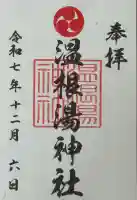 奉拝
温根湯神社
令和七年十二月六日